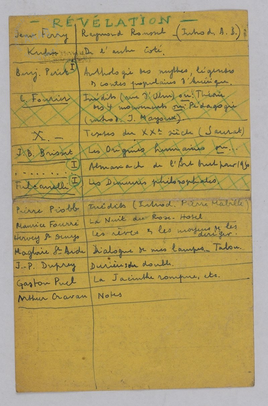 — RÉVÉLATION —
Jean Ferry | Raymond Roussel (Introd. A. B.)
De l'autre côté
Benj. Péret | Anthologie des mythes, légendes
& contes populaires d'Amérique
C. Fourier | Inédits
ou Pédagogie
(introd. J.
X. — | Textes du XXe siècle
J.B. Brisset | Les Origines humaines ou...
Almanach de l'Art brut pour
Fulcanelli | Les Demeures philosophales
Pierre Piobb | Inédits (Introd. Pierre Mabille)
Maurice Fourré | La Nuit du Rose-Hotel
Hervey St Denys | Les rêves & les moyens de les
diriger
Magloire St Aude | Dialogue de mes lampes, Tabou
J.-P. Duprey | Derrière son double
Gaston Puel | La Jacinthe rompue, etc.
Arthur Cravan | Notes